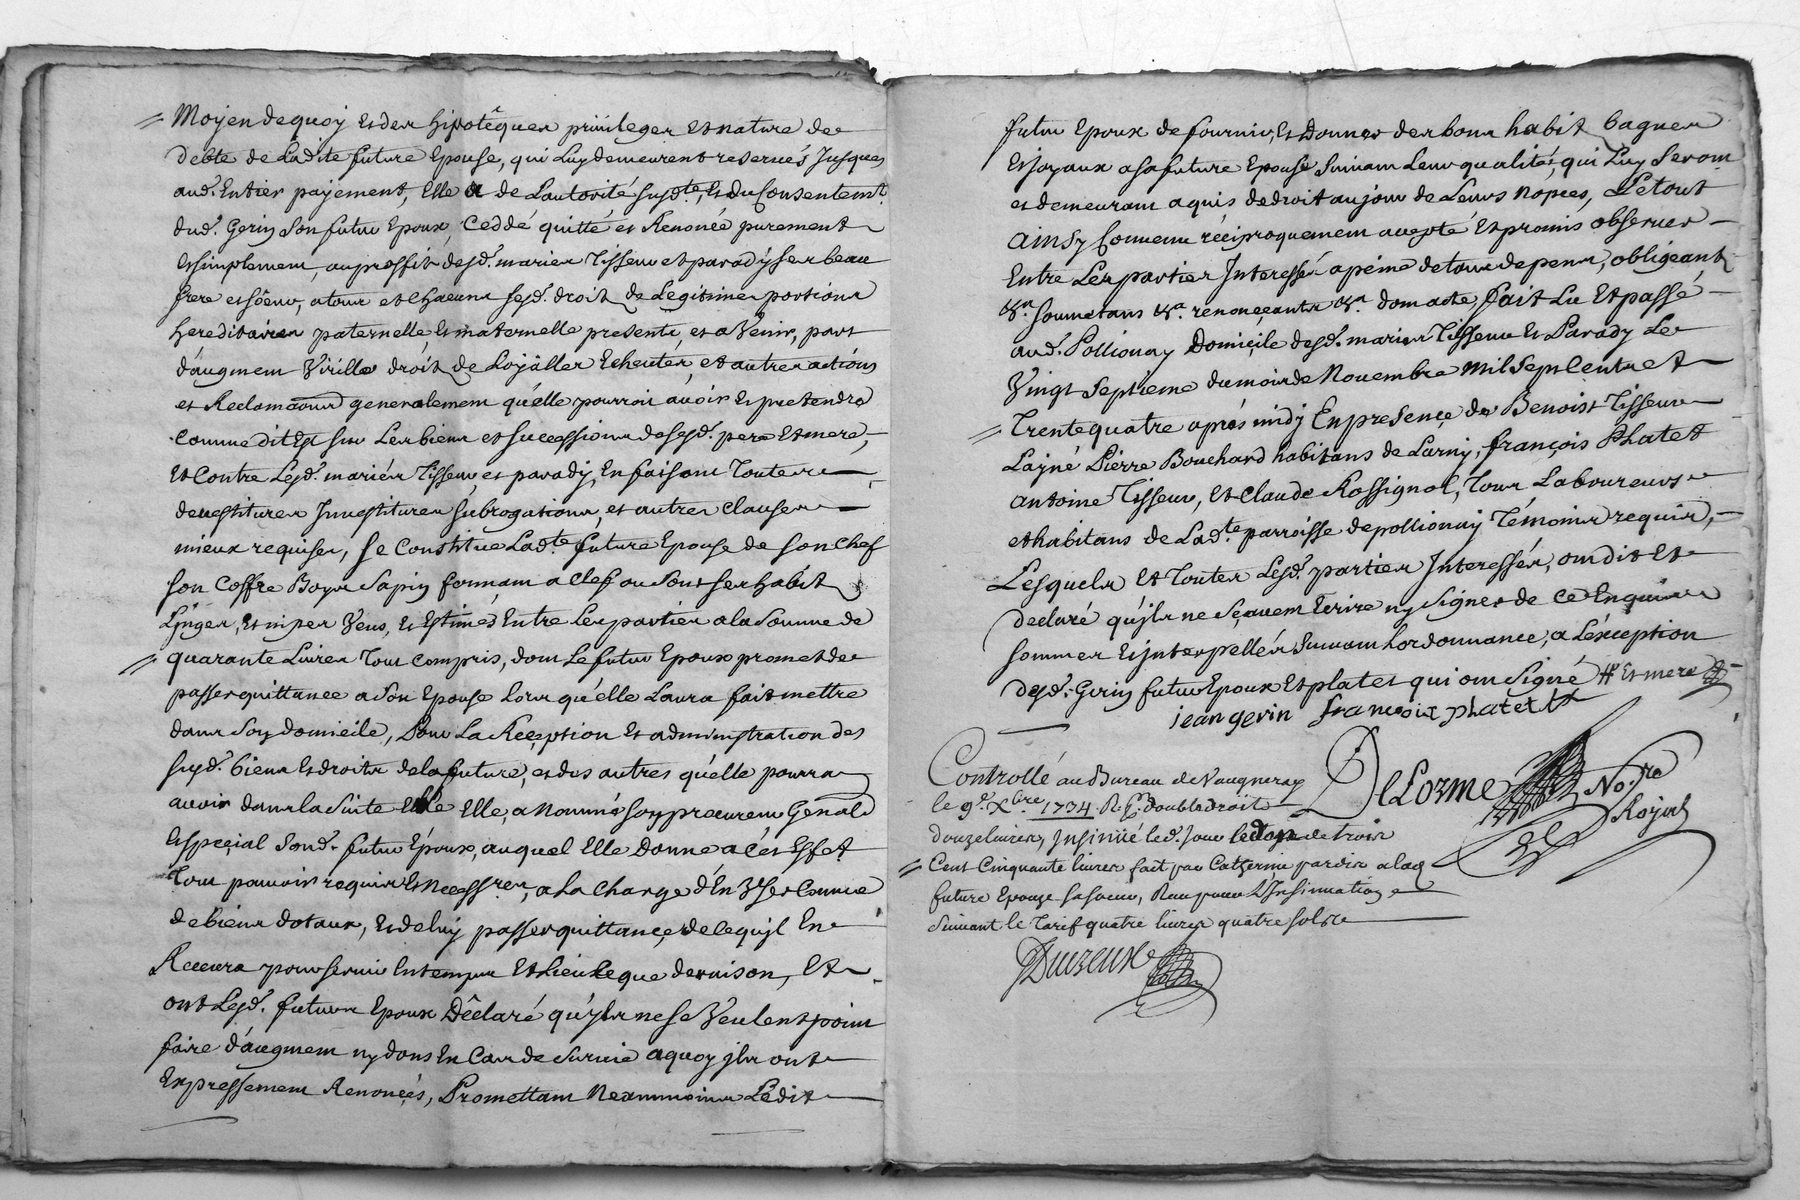 Moyen de quoy et des hipotêques privileges et nature de
debte de Ladite future Epouse, qui Luy demeurent reservés Jusques
aud. Entier payement, Elle a de Lautorité susd.te, et du Consentemt.
dud. Gerin Son futur Epoux, Ceddé quitté et Renoncé purement
et simplement, au proffit desd. mariés Tisseur et paradÿ ses beau
frere et sœur, a tous et chacuns sesd. droit de Legitimes portions
hereditaires paternelle, et maternelle presents, et a Venir, part
d'augment Virille droit de Loyâlles Echeutes, et autres actions
et Reclamaons generalement qu'elle pourroit avoir et pretendre
comme dit Est sur Les biens et successions de sesd. pere et mere,
et Contre Lesd. mariés Tisseur et parady, En faisant Toutes
devestitures Jnvestitures subrogations, et autres clauses
mieux requises, se Constitue Lad.te future Epouse de son chef
son Coffre Boys Sapin fermant a Clef ou Sont ses habit
Linges, et nipes Zeus, et Estimés Entre Les parties a la Somme de
quarante Livres Tout Compris, dont Le futur Epoux promet de
passer quittance a Son Epouse Lors qu'elle Laura fait mettre
dans Son domicile, Pour La Reception et administration des
susd. biens et droits de la future, et des autres qu'elle pourra
avoir dans la Suite Elle, a Nommé son procureur Genâl
et special Sond. futur Epoux, auquel Elle Donne a cés Effet
Tout pouvoir requis et Necessres, a La Charge d'En Vser Comme
de biens dotaux, et de luy passer quittance de ce qu'jl En
Recevra pour servir En temps et Lieu Ce que de raison, Et
ont Lesd. futurs Epoux Dêclaré qu'jls ne se Veulent point
faire d'augment ny dons En Cas de Survie a quoy jls ont
Expressement Renoncés, Promettant Neanmoins Ledit
futur Epoux de fournir, et Donner des bons habit bagues
et joyaux a sa future Epouse Suivant Leur qualité, qui Luy Seront
et demeurant aquis de droit au jour de Leurs nopces, Le tout
ainsy Convenu réciproquement accepté et promis observer
Entre Les parties Jnteressés a peine de tous depens, obligeant
&a. soumetans &a. renonceants &a. dont acte fait Lu et passé
aud. Pollionay Domicile desd. mariés Tisseur et Parady Le
Vingt Septieme du mois de Novembre Mil Sept Cent et
Trente quatre aprés midy En presence de Benoist Tisseur
Laÿné Pierre Bouchard habitans de Larny, françois Phatet
antoine Tisseur, et Claude Rossignol, Tous Laboureurs
et habitans de Lad.te parroisse de pollionay Témoins requis,
Lesquels et Toutes Lesd. parties Jnteressés, ont dit et
declaré qu'jls ne Sçavent Ecrire ny Signer de ce Enquis
sommés et Jnterpellés Suivant Lordonnance, a Lexception
desd. Gerin futur Epoux et platet qui ont Signé # et mere #
jean gerin françoix phatett
Controllé au Bureau de Vaugneray
le 9e. Xbre 1734 R. double droit
douze livres, Jnsinüé led. Jour le don de trois
Cent Cinquante livres fait par Catherine pardix a lad
future Epouze sa sœur, Reçu pour L'Jnsinuation
Suivant le Tarif quatre livres quatre sols
DeLorme No.re
Royal